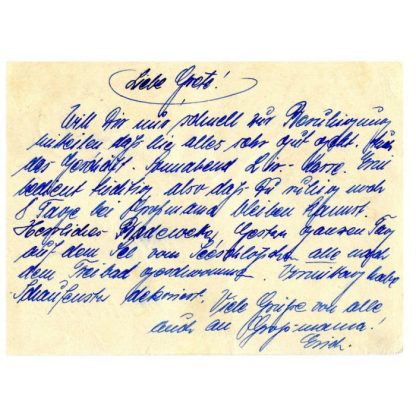 Liebe Grete!
Will Dir nur schnell zur Beruhigung
mitteilen daß hier alles sehr gut geht. Auch
das Geschäft. Sonnabend Erni
bedient tüchtig also daß Du ruhig noch
8 Tage bei Großmama bleiben kannst.
Herrliches Badewetter. Gestern ganzen Tag
auf dem See vom Seeschlößchen alle nach
dem Freibad geschwommen. Vormittag habe
Schaufenster dekoriert.
Viele Grüße von alle
auch an Großmama!
Erich.